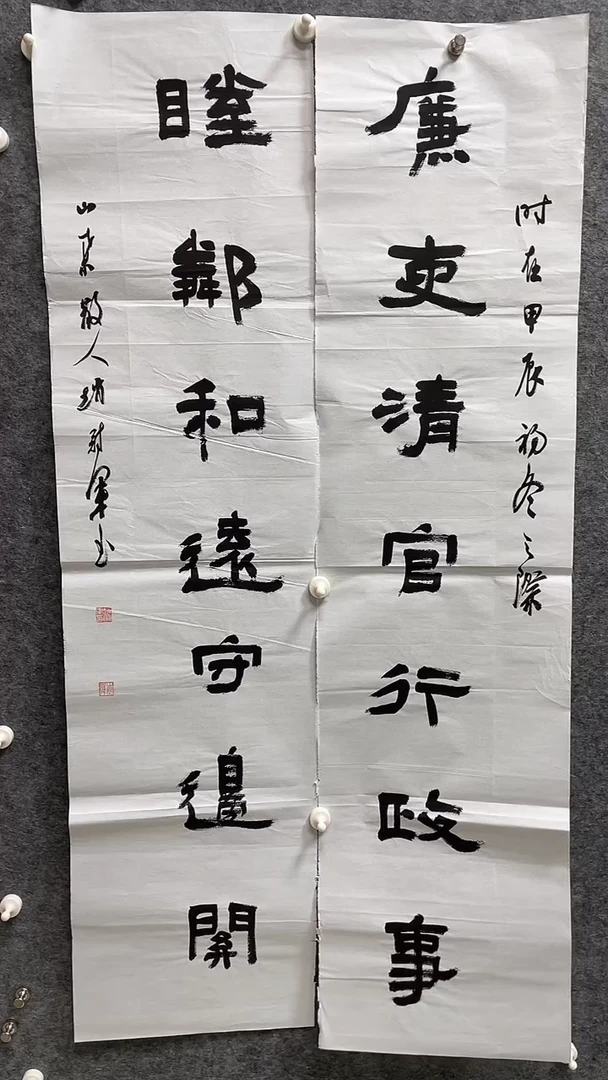 时在甲辰初冬之際
廉吏清官行政事
睦鄰和遠守邊關
山東散人趙軍书